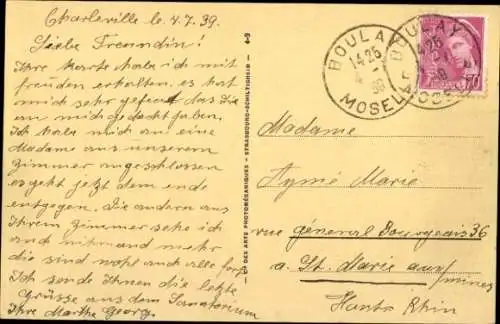 Charleville le 4.7.39.
Liebe Freundin!
Ihre Karte habe ich mit
freuden erhalten, es hat
mich sehr gefreut das Sie
an mich gedacht haben.
Ich habe mich an eine
Madame aus unserem
Zimmer angeschlossen
es geht jetzt dem ende
entgegen. Die andern aus
Ihrem Zimmer sehe ich
auch niemand mehr
die sind wohl auch alle fort
Ich sende Ihnen die letzte
Grüsse aus dem Sanatorium
Ihre Marthe Georg.
4-9
ETS DES ARTS PHOTOMÉCANIQUES - STRASBOURG-SCHILTIGHEIM
BOULAY
1425
MOSELLE
BOULAY
1425
MOSELLE
Madame
Aymé Marie
rue général Bourgeois 36
a. St. Marie aux
mines
Haute Rhin